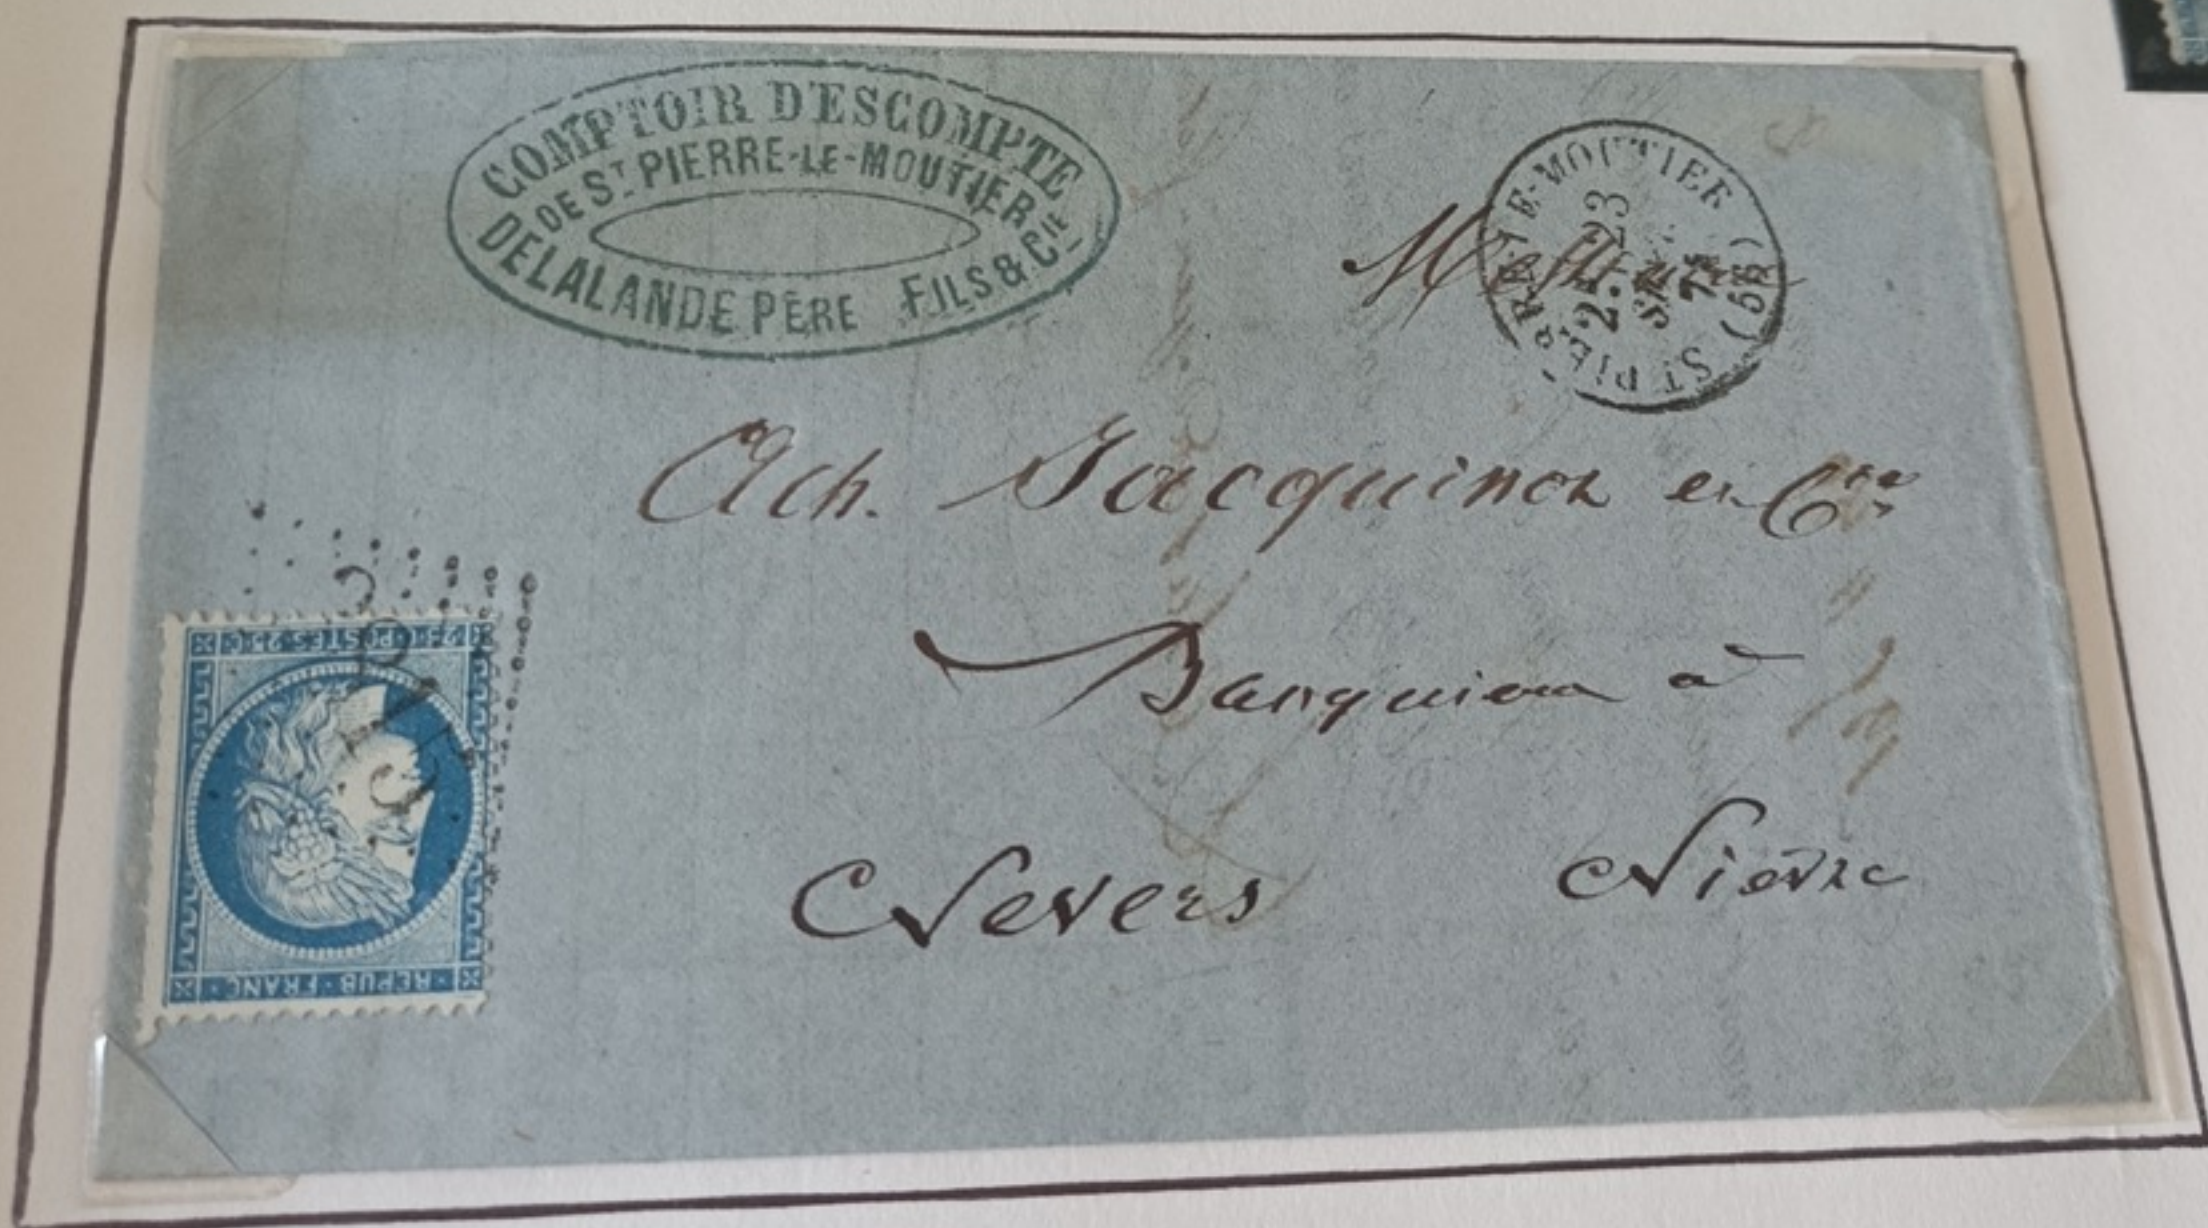 COMPTOIR D'ESCOMPTE
DE ST PIERRE-LE-MOUTIER
DELALANDE PÈRE FILS & CIE
ST PIERRE-LE-MOUTIER (56)
2E 23
Ach. Jacquinot et Cie
Banquiers à
Nevers Nièvre
25 C POSTES 25 C
REPUB FRANC